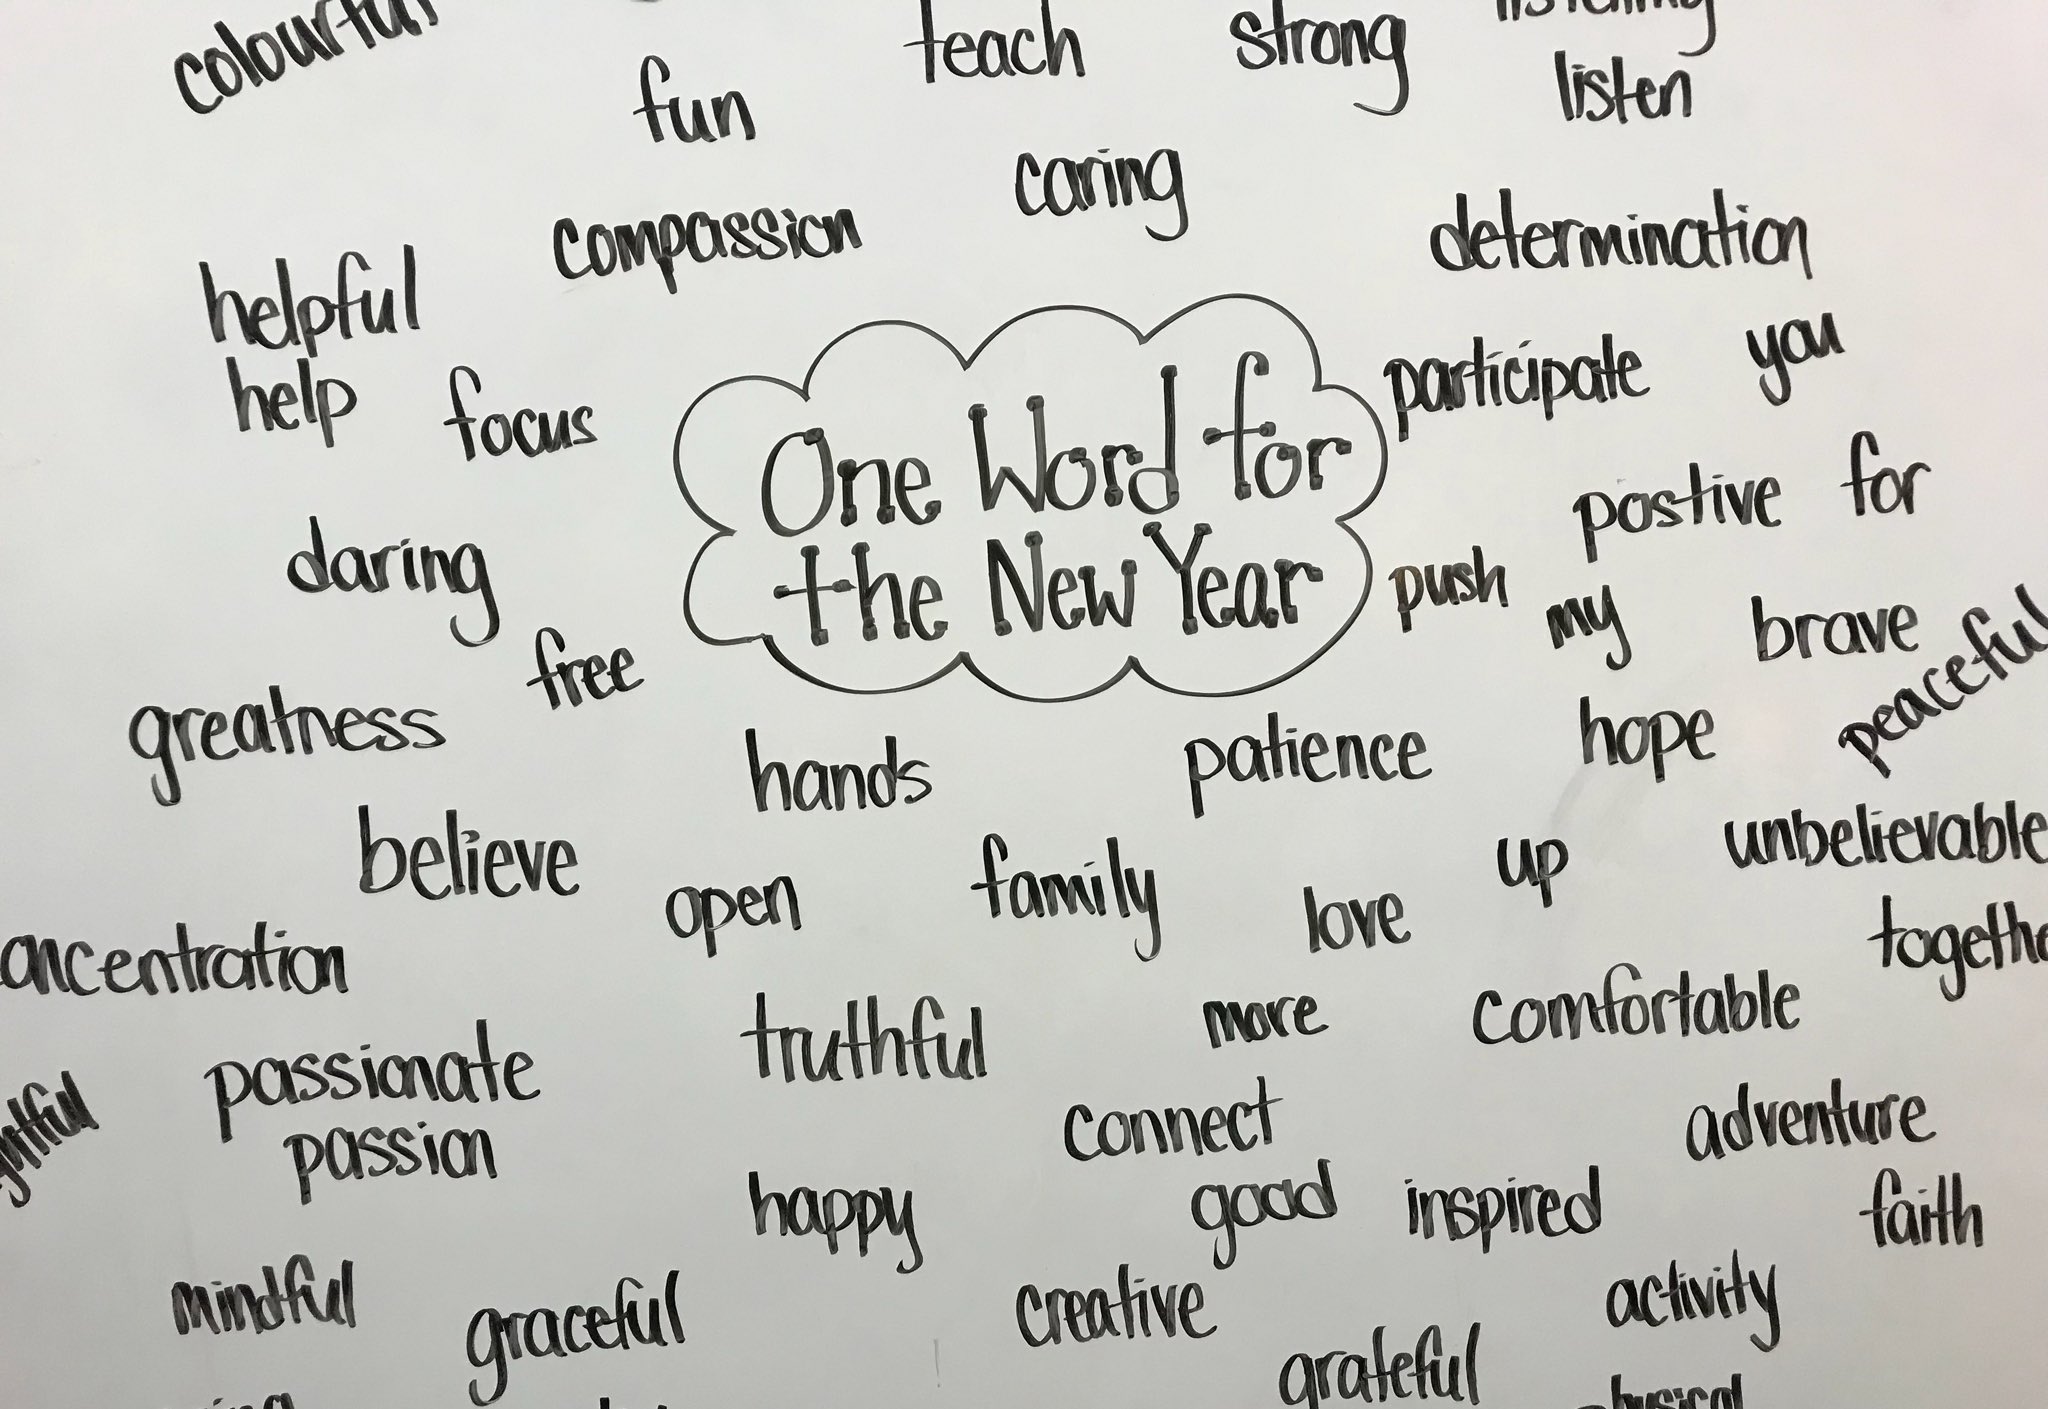 colourful
teach
strong
listening
listen
fun
caring
compassion
determination
helpful
help
focus
participate
you
One Word for
the New Year
postive
for
daring
push
my
brave
free
peaceful
greatness
hands
patience
hope
believe
open
family
love
up
unbelievable
oncentration
togethe
truthful
more
comfortable
passionate
passion
connect
adventure
happy
good
inspired
faith
mindful
graceful
creative
activity
grateful